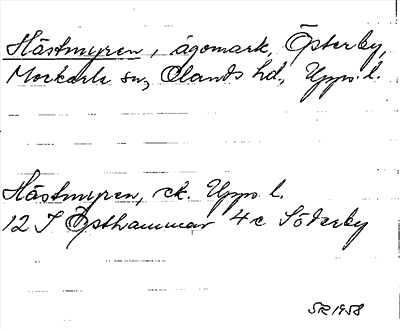 Hästmyren, ägomark, Österby,
Morkarla sn, Olands hd, Upps. l.
Hästmyren, ek. Upps. l.
12 I Östhammar 4c Söderby
SR 1958